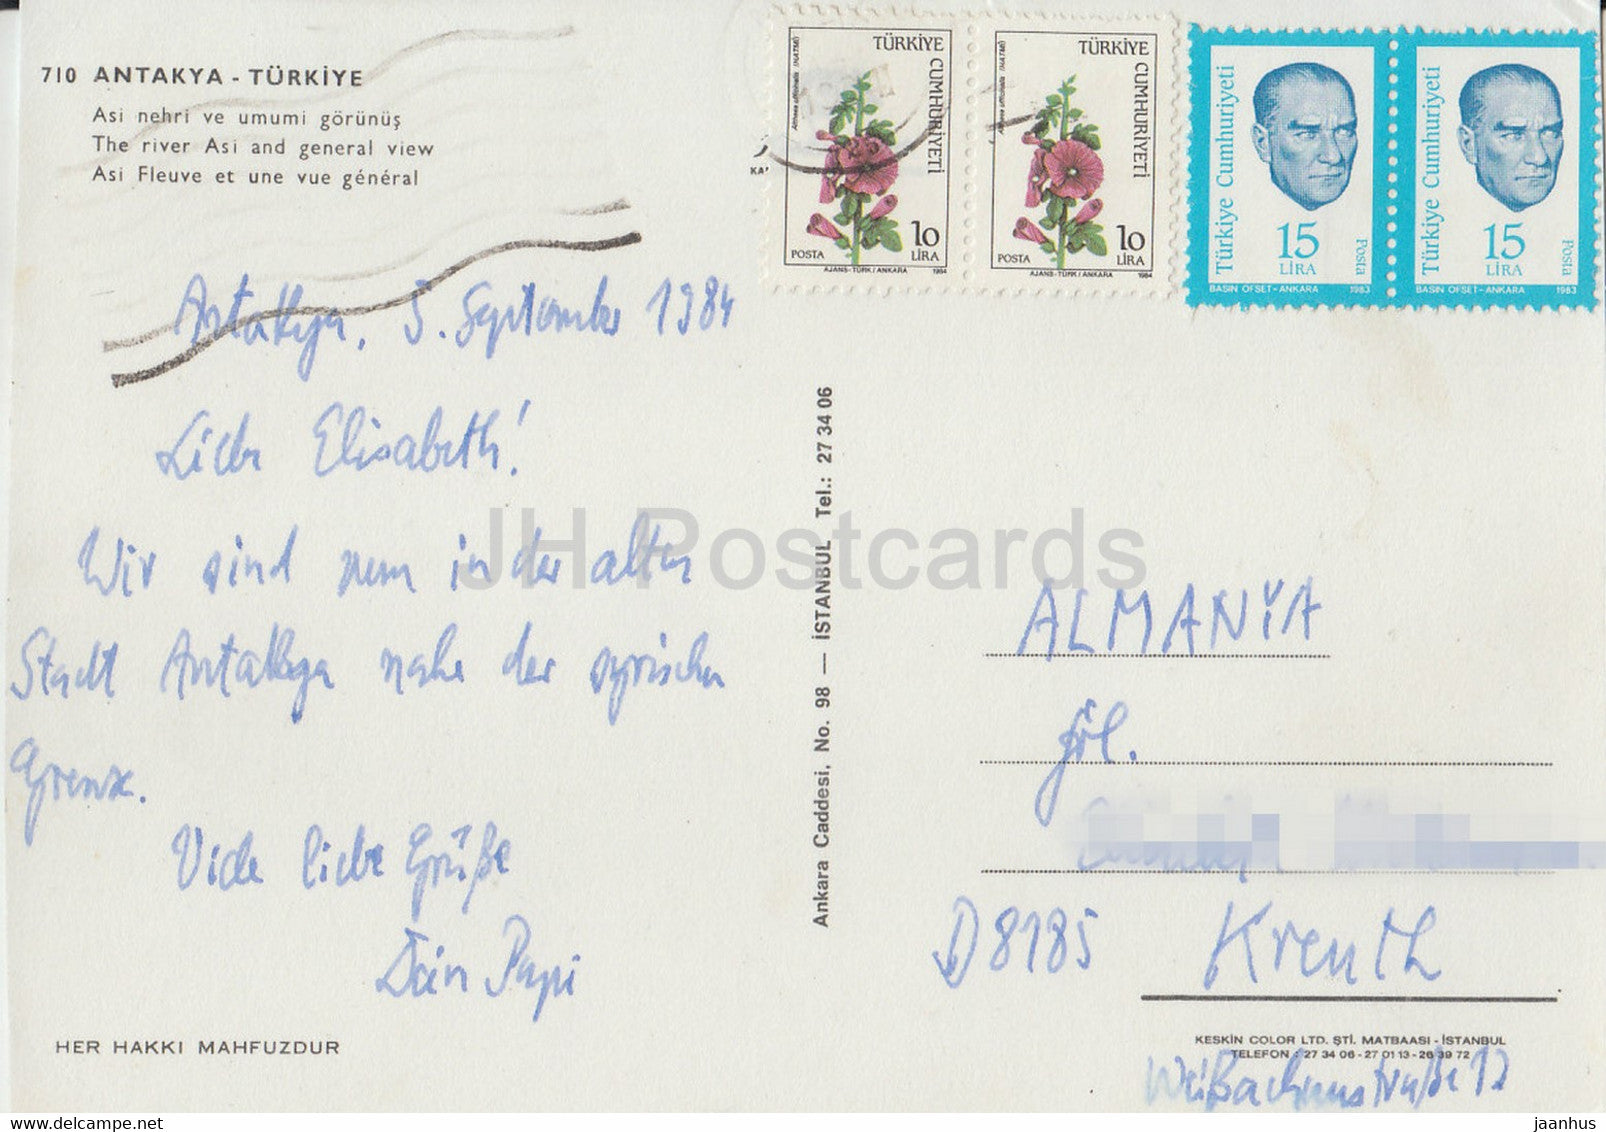 710 ANTAKYA - TÜRKİYE
Asi nehri ve umumi görünüş
The river Asi and general view
Asi Fleuve et une vue général
TÜRKİYE CUMHURİYETİ
Althaea officinalis (HATMİ)
10 LİRA
POSTA
AJANS-TÜRK / ANKARA 1984
TÜRKİYE CUMHURİYETİ
Althaea officinalis (HATMİ)
10 LİRA
POSTA
AJANS-TÜRK / ANKARA 1984
Türkiye Cumhuriyeti
15 LİRA
Posta
BASIN OFSET - ANKARA 1983
Türkiye Cumhuriyeti
15 LİRA
Posta
BASIN OFSET - ANKARA 1983
Antakya, 5. September 1984
Liebe Elisabeth!
Wir sind nun in der alten
Stadt Antakya nahe der syrischen
Grenze.
Viele liebe Grüße
Dein Papi
HER HAKKI MAHFUZDUR
Ankara Caddesi, No. 98 — İSTANBUL Tel.: 27 34 06
JH Postcards
ALMANYA
Frl.
D 8185 Kreuth
KESKİN COLOR LTD. ŞTİ. MATBAASI - İSTANBUL
TELEFON : 27 34 06 - 27 01 13 - 26 39 72
Weißachaustraße 12
www.delcampe.net
jaanhus